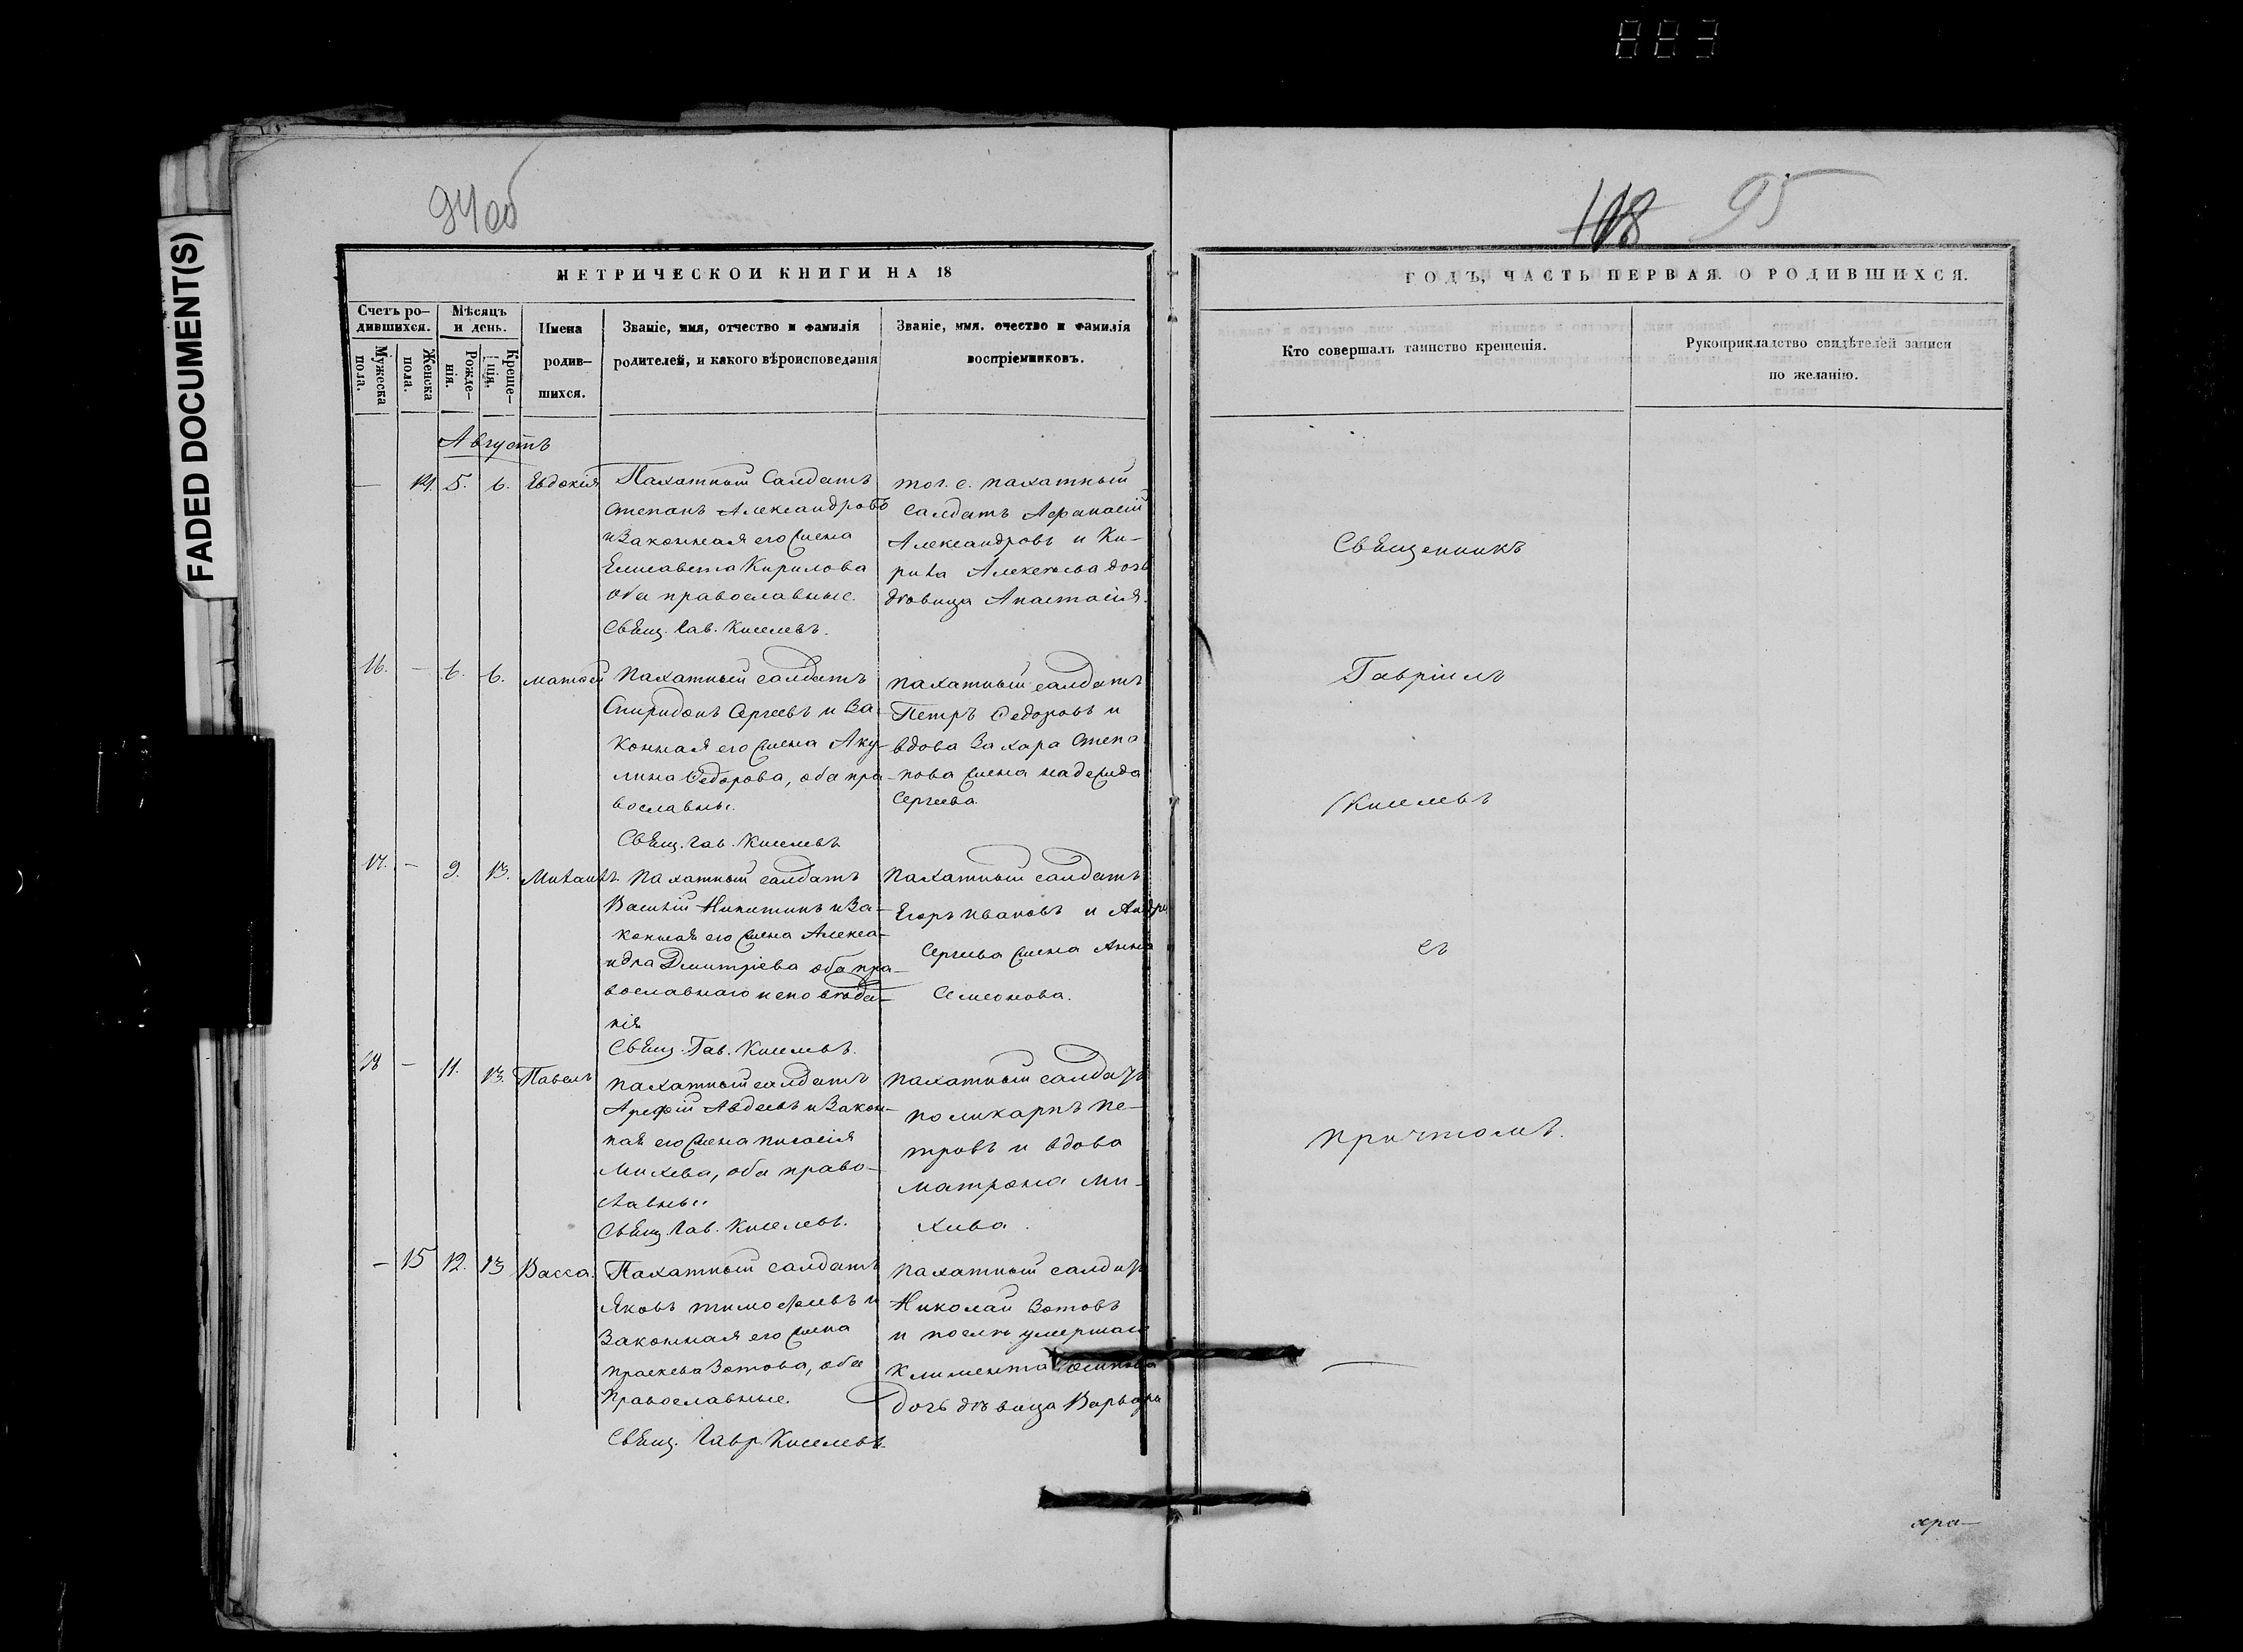 883
FADED DOCUMENT(S)
94об
108 95
МЕТРИЧЕСКОЙ КНИГИ НА 18
ГОДЪ, ЧАСТЬ ПЕРВАЯ О РОДИВШИХСЯ.
Счетъ ро-
дившихся.
Мужеска
пола.
Женска
пола.
Мѣсяцъ
и день.
Рожде-
нія.
Креще-
нія.
Имена
родив-
шихся.
Званіе, имя, отчество и фамилія
родителей, и какого вѣроисповеданія
Званіе, имя. очество и фамилія
воспріемниковъ.
Кто совершалъ таинство крещенія.
Рукоприкладство свидѣтелей записи
по желанію.
Августъ
— 14. 5. 6. Евдокія
Пахатный Салдатъ
Степанъ Александровъ
и Законная его жена
Елисавета Кирилова
оба православные.
Свящ. Гав. Киселевъ.
тог. с. пахатный
салдатъ Афанасій
Александровъ и Ки-
рила Алексѣева дочь
дѣвица Анастасія.
16. — 6. 6. Матѳей
пахатный салдатъ
Спиридонъ Сергеевъ и За-
конная его жена Аку-
лина Ѳедорова, оба пра-
вославны.
Свящ. Гав. Киселевъ
пахатный салдатъ
Петръ Ѳедоровъ и
вдова Захара Степа
нова жена надежда
Сергеева.
17. — 9. 13. Михаилъ.
пахатный салдатъ
Василій Никитинъ и За-
конная его жена Алекса-
ндра Дмитріева оба пра-
вославнаго исповѣда-
нія
Свящ. Гав. Киселевъ.
пахатный салдатъ
Егоръ Ивановъ и Андрея
Сергеева жена Анна
Семеонова.
18 — 11. 13. Павелъ
пахатный салдатъ
Арефій Авдеевъ и Закон-
ная его жена
Михева, оба право-
славные
Свящ. Гав. Киселевъ.
пахатный салдатъ
поликарпъ Пе-
тровъ и вдова
матрона Ми-
хеева.
— 15 12. 13 Васса.
Пахатный салдатъ
Яковъ тимофеевъ и
Законная его жена
праскева Зотова, оба
Православные.
Свящ. Гавр. Киселевъ.
пахатный салдатъ
Николай Зотовъ
и послѣ умершаго
Климента Осипова
дочь дѣвица Варвара
Священникъ
Гавріилъ
Киселевъ
съ
причтомъ.
хра—